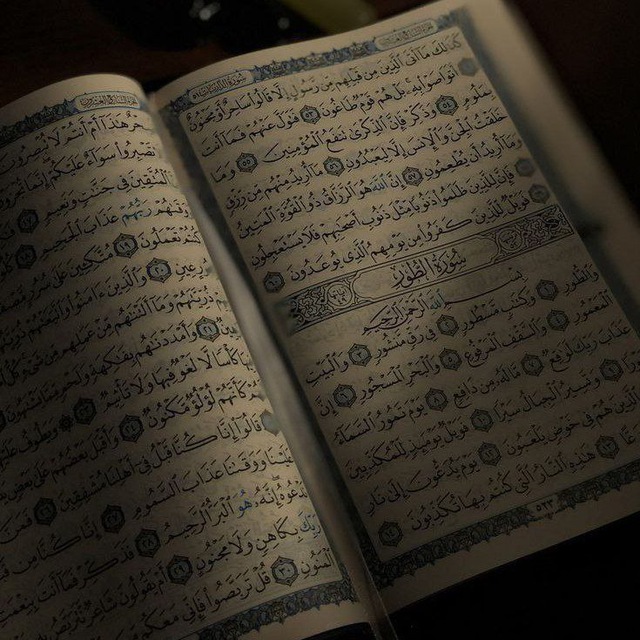 كَذَٰلِكَ مَآ أَتَى ٱلَّذِينَ مِن قَبْلِهِم مِّن رَّسُولٍ إِلَّا قَالُوا۟ سَاحِرٌ أَوْ مَجْنُونٌ
٥٢ أَتَوَاصَوْا۟ بِهِۦ بَلْ هُمْ قَوْمٌ طَاغُونَ ٥٣ فَتَوَلَّ عَنْهُمْ فَمَآ أَنتَ
بِمَلُومٍ ٥٤ وَذَكِّرْ فَإِنَّ ٱلذِّكْرَىٰ تَنفَعُ ٱلْمُؤْمِنِينَ ٥٥ وَمَا
خَلَقْتُ ٱلْجِنَّ وَٱلْإِنسَ إِلَّا لِيَعْبُدُونِ ٥٦ مَآ أُرِيدُ مِنْهُم مِّن رِّزْقٍ
وَمَآ أُرِيدُ أَن يُطْعِمُونِ ٥٧ إِنَّ ٱللَّهَ هُوَ ٱلرَّزَّاقُ ذُو ٱلْقُوَّةِ ٱلْمَتِينُ
٥٨ فَإِنَّ لِلَّذِينَ ظَلَمُوا۟ ذَنُوبًا مِّثْلَ ذَنُوبِ أَصْحَٰبِهِمْ فَلَا يَسْتَعْجِلُونِ
٥٩ فَوَيْلٌ لِّلَّذِينَ كَفَرُوا۟ مِن يَوْمِهِمُ ٱلَّذِى يُوعَدُونَ ٦٠
سُورَةُ الطُّورِ
بِسْمِ ٱللَّهِ ٱلرَّحْمَٰنِ ٱلرَّحِيمِ
وَٱلطُّورِ ١ وَكِتَٰبٍ مَّسْطُورٍ ٢ فِى رَقٍّ مَّنشُورٍ ٣ وَٱلْبَيْتِ
ٱلْمَعْمُورِ ٤ وَٱلسَّقْفِ ٱلْمَرْفُوعِ ٥ وَٱلْبَحْرِ ٱلْمَسْجُورِ ٦ إِنَّ
عَذَابَ رَبِّكَ لَوَٰقِعٌ ٧ مَّا لَهُۥ مِن دَافِعٍ ٨ يَوْمَ تَمُورُ ٱلسَّمَآءُ
مَوْرًا ٩ وَتَسِيرُ ٱلْجِبَالُ سَيْرًا ١٠ فَوَيْلٌ يَوْمَئِذٍ لِّلْمُكَذِّبِينَ
١١ ٱلَّذِينَ هُمْ فِى خَوْضٍ يَلْعَبُونَ ١٢ يَوْمَ يُدَعُّونَ إِلَىٰ نَارِ
جَهَنَّمَ دَعًّا ١٣ هَٰذِهِ ٱلنَّارُ ٱلَّتِى كُنتُم بِهَا تُكَذِّبُونَ ١٤
٥٢٣
أَفَسِحْرٌ هَٰذَآ أَمْ أَنتُمْ لَا تُبْصِرُونَ
تَصْبِرُوا۟ سَوَآءٌ عَلَيْكُمْ إِنَّمَا تُجْزَوْنَ
ٱلْمُتَّقِينَ فِى جَنَّٰتٍ وَنَعِيمٍ ١٧
وَوَقَىٰهُمْ رَبُّهُمْ عَذَابَ ٱلْجَحِيمِ ١٨
كُنتُمْ تَعْمَلُونَ ١٩ مُتَّكِـِٔينَ عَلَىٰ سُرُرٍ
عِينٍ ٢٠ وَٱلَّذِينَ ءَامَنُوا۟ وَٱتَّبَعَتْهُمْ
ذُرِّيَّتَهُمْ وَمَآ أَلَتْنَٰهُم مِّنْ عَمَلِهِم مِّن شَىْءٍ
٢١ وَأَمْدَدْنَٰهُم بِفَٰكِهَةٍ وَلَحْمٍ مِّمَّا يَشْتَهُونَ
كَأْسًا لَّا لَغْوٌ فِيهَا وَلَا تَأْثِيمٌ ٢٣ وَيَطُوفُ
كَأَنَّهُمْ لُؤْلُؤٌ مَّكْنُونٌ ٢٤ وَأَقْبَلَ بَعْضُهُمْ عَلَىٰ بَعْضٍ
قَالُوٓا۟ إِنَّا كُنَّا قَبْلُ فِىٓ أَهْلِنَا مُشْفِقِينَ ٢٦ فَمَنَّ
عَلَيْنَا وَوَقَىٰنَا عَذَابَ ٱلسَّمُومِ ٢٧ إِنَّا كُنَّا مِن
نَدْعُوهُ إِنَّهُۥ هُوَ ٱلْبَرُّ ٱلرَّحِيمُ ٢٨ فَذَكِّرْ فَمَآ أَنتَ بِنِعْمَتِ
رَبِّكَ بِكَاهِنٍ وَلَا مَجْنُونٍ ٢٩ أَمْ يَقُولُونَ شَاعِرٌ نَّتَرَبَّصُ
ٱلْمَنُونِ ٣٠ قُلْ تَرَبَّصُوا۟ فَإِنِّى مَعَكُم